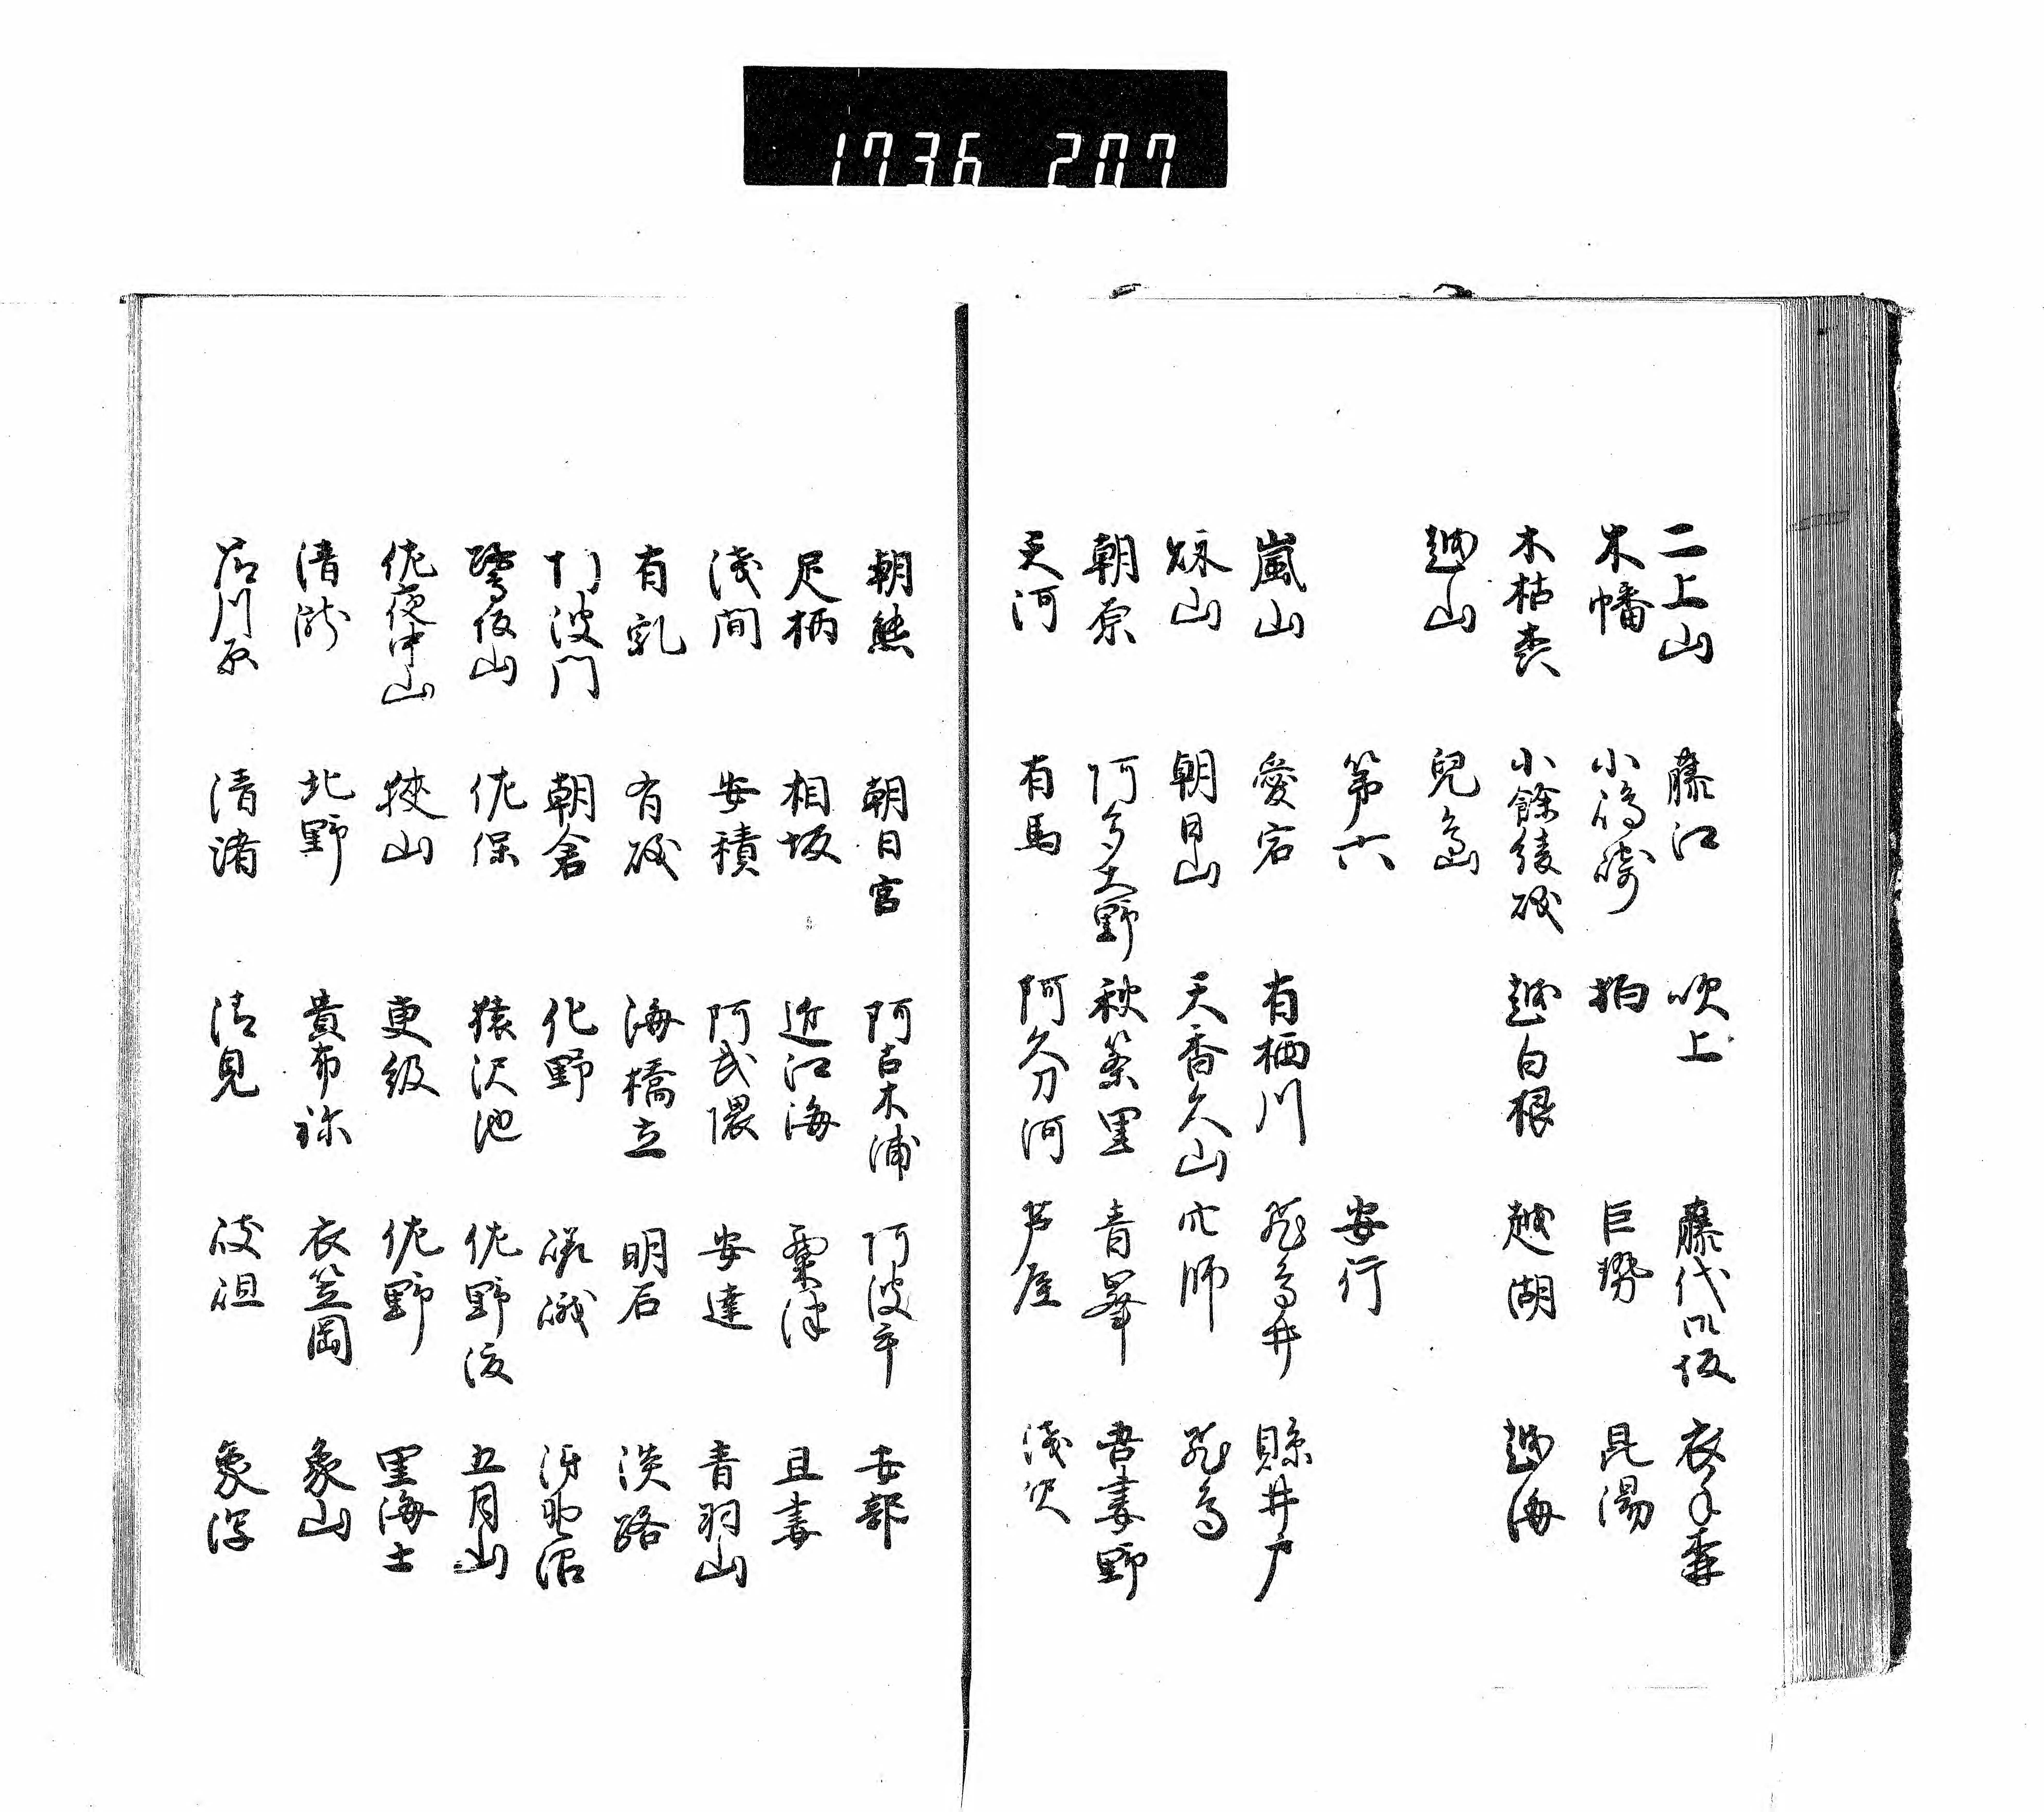 1736 207
二上山 藤江 吹上 藤代御坂 衣手森
木幡 小嶋崎 狛 巨勢 昆陽
木枯森 小餘綾磯 越白根 越湖 越海
越山 兒島
第六 安行
嵐山 愛宕 有栖川 飛鳥井 縣井戸
秋山 朝日山 天香久山 穴師 飛鳥
朝原 阿多大野 秋篠里 青峯 吾妻野
天河 有馬 阿久刀河 芦屋 淺沢
朝熊 朝日宮 阿古木浦 阿波手 安部
足柄 相坂 近江海 粟津 且妻
淺間 安積 阿武隈 安達 青羽山
有乳 有磯 海橋立 明石 淡路
阿波門 朝倉 化野 嵯峨
佐保 猿沢池 佐野渡 五月山
佐夜中山 狭山 更級 佐野 里海士
清瀧 北野 貴布祢 衣笠岡 象山
清渚 清見 象